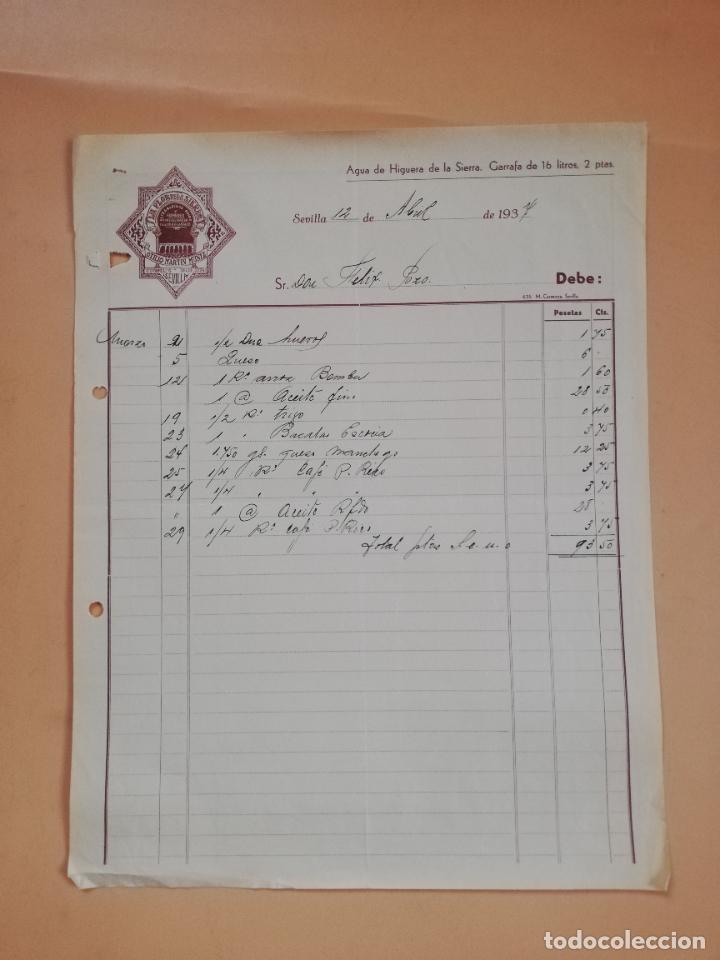 Agua de Higuera de la Sierra. Garrafa de 16 litros, 2 ptas.
LA FLOR DE LA SIERRA
MARTIN MOYA
SEVILLA
Sevilla 12 de Abril de 1937
Sr. Don Felix Pozo. Debe:
Pesetas Cts.
Marzo 2 1/2 Dna huevos 1 75
5 Queso 6 -
12 1 Kº arroz Bomba 1 60
1 @ Aceite fino 28 50
19 1/2 Kº trigo 0 40
23 1 " Bacalao Escocia 3 75
24 1.750 gs. queso manchego 12 25
25 1/4 Kº Café P. Rico 3 75
27 1/4 " " " 3 75
" 1 @ Aceite Rfdo 28
29 1/4 Kº café P. Rico 3 75
Total ptas 93 50
todocoleccion
todocoleccion.net